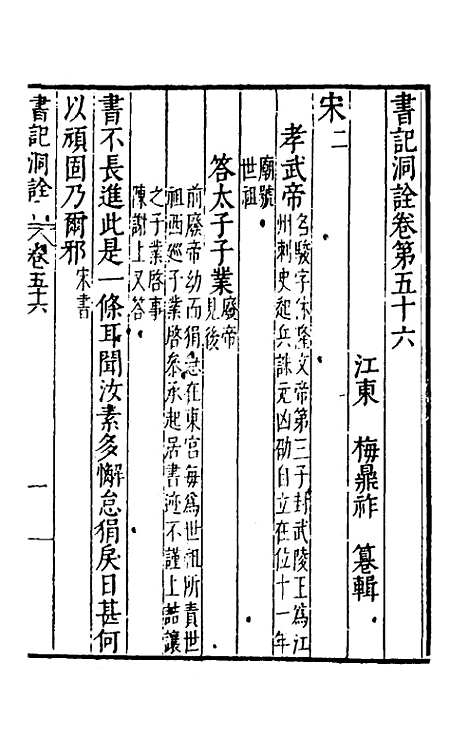 書記洞詮卷第五十六
江東　梅鼎祚　纂輯
宋二
孝武帝
名駿字休隆文帝第三子封武陵王為江
州刺史起兵誅元凶劭自立在位十一年
廟號
世祖
答太子子業
廢帝
見後
前廢帝幼而狷急在東宮每為世祖所責世
祖西巡子業啓參承起居書迹不謹上詰讓
之子業啓事
陳謝上又答
書不長進此是一條耳聞汝素多懈怠狷戾日甚何
以頑固乃爾邪宋書
書記洞詮　卷五十六　一